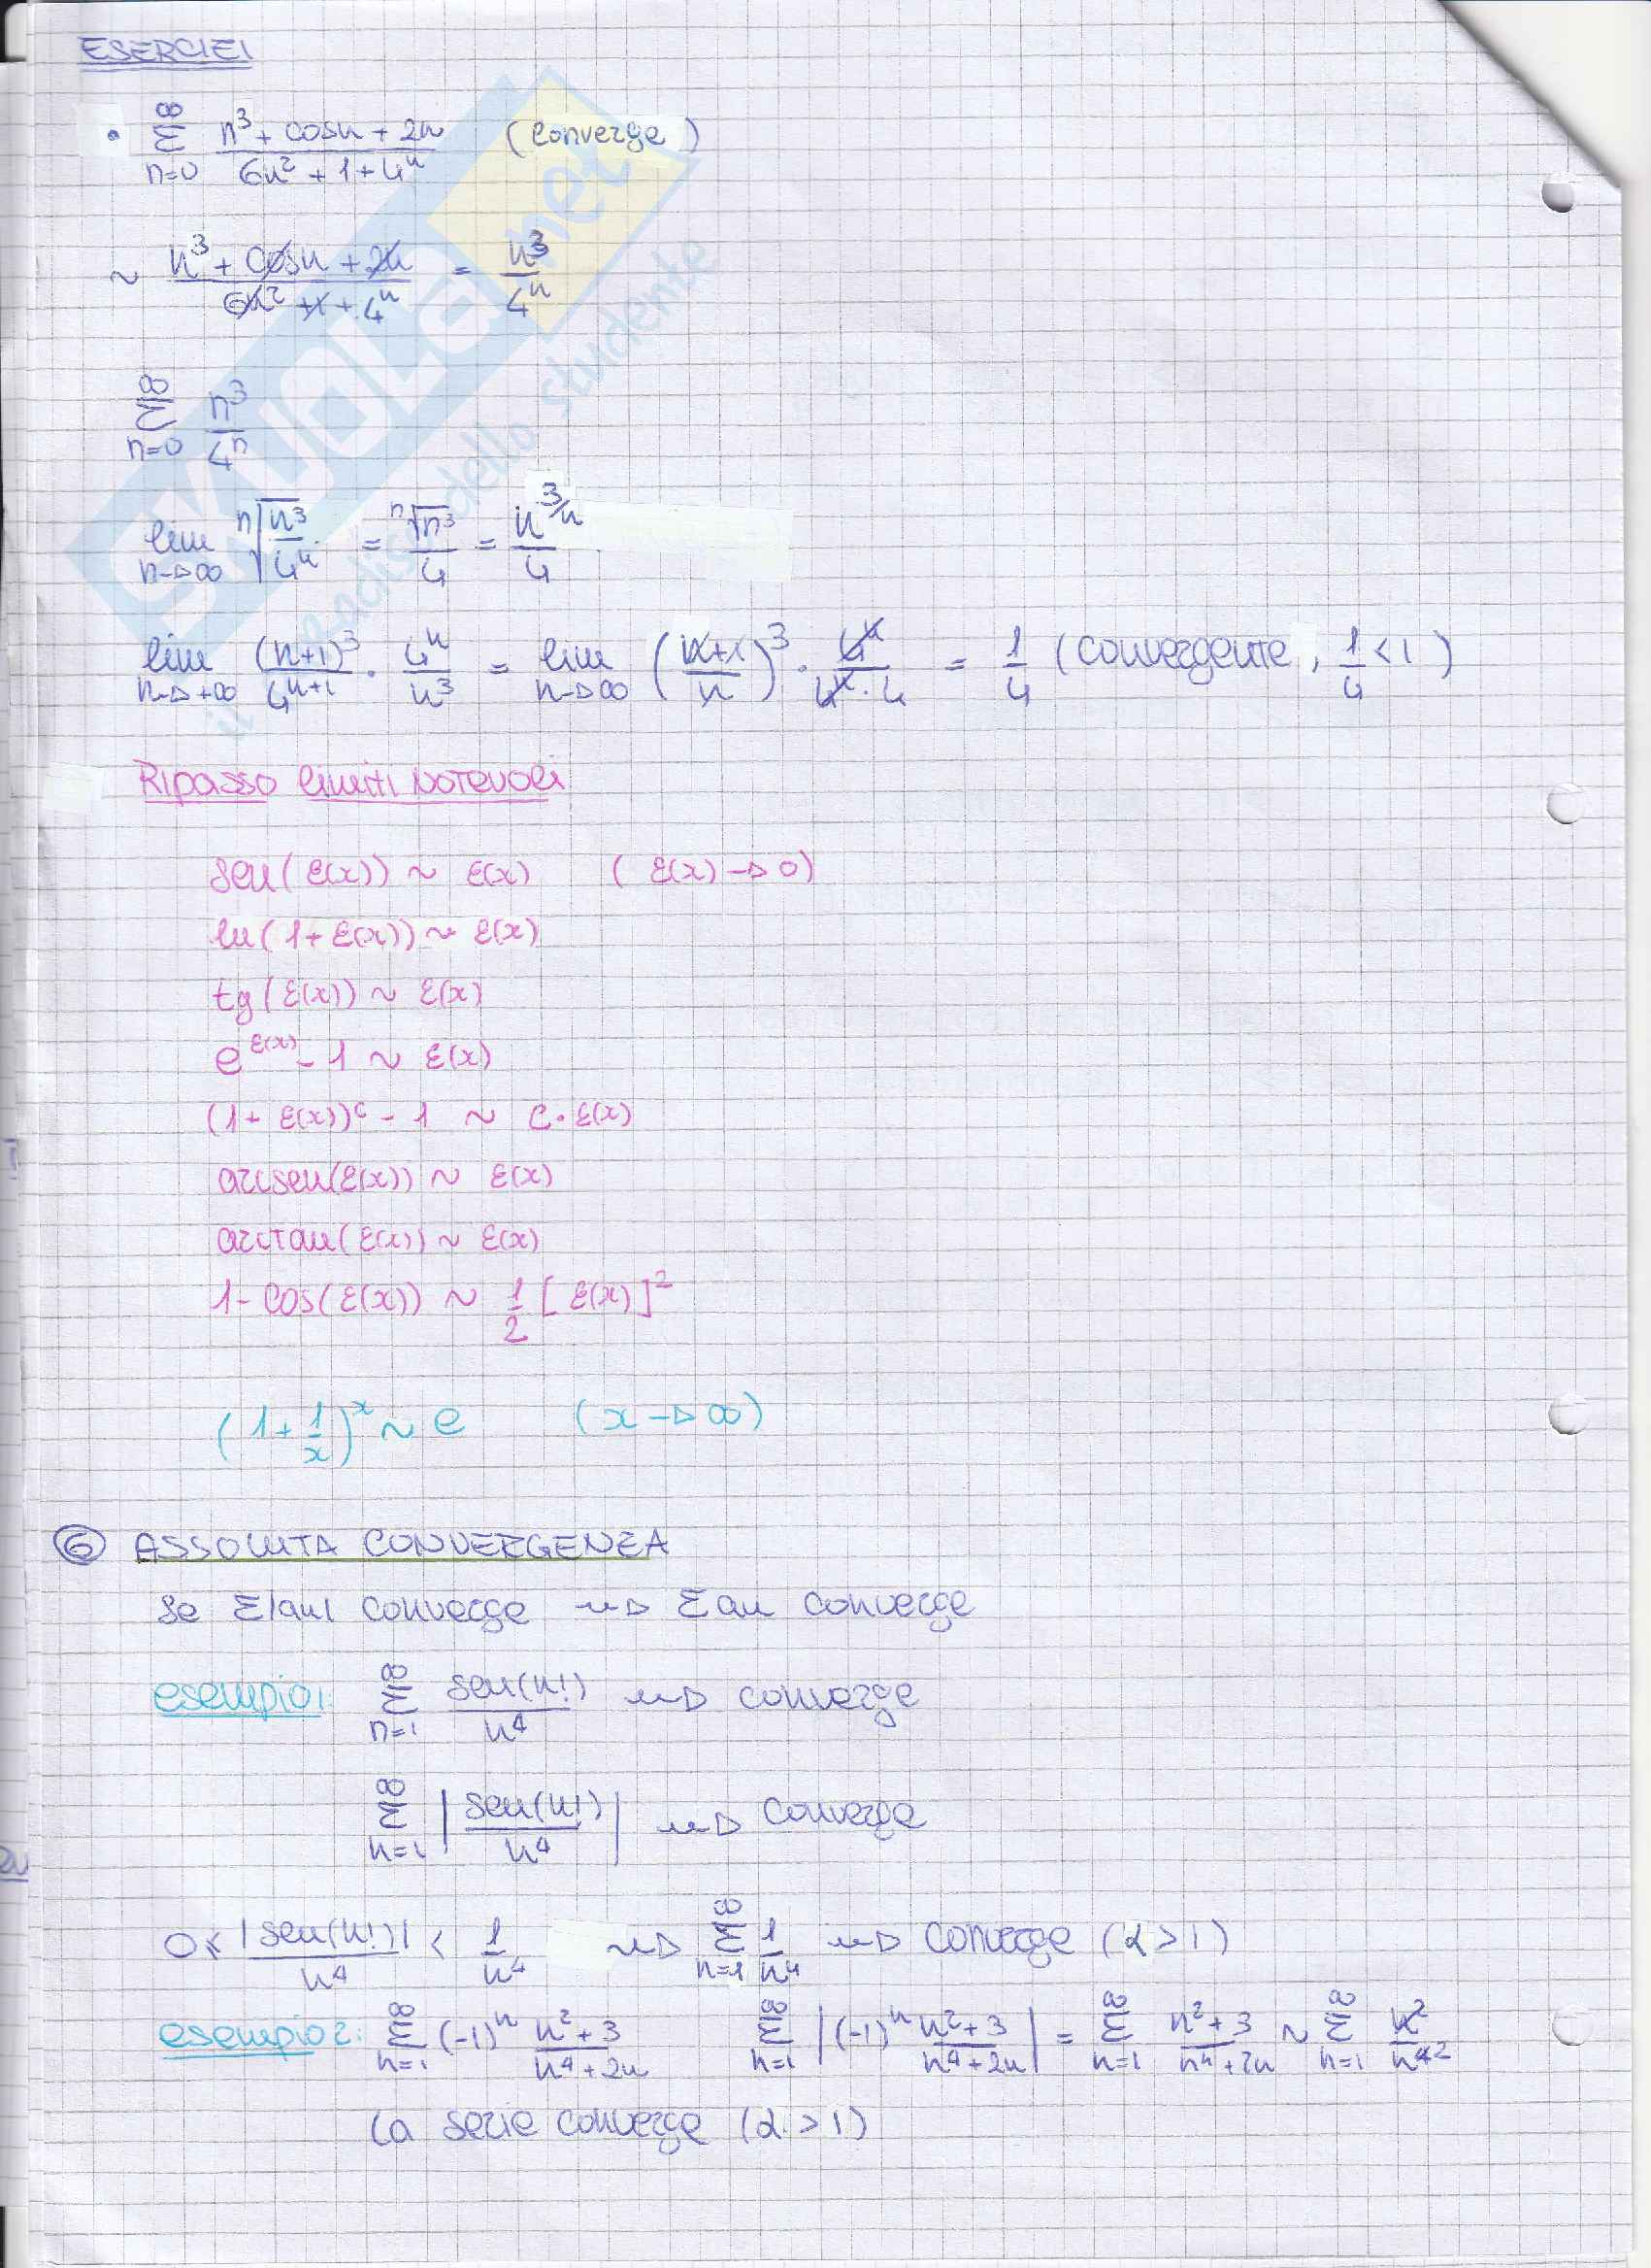 ESERCIZI
• ∞Σn=0 (n³ + cosn + 2n)/(6n² + 1 + 4ⁿ) (converge)
~ (n³ + cosn + 2n)/(6n² + 1 + 4ⁿ) = n³/4ⁿ
∞Σn=0 n³/4ⁿ
lim n→∞ ⁿ√(n³/4ⁿ) = ⁿ√n³/4 = n^(3/n)/4
lim n→+∞ (n+1)³/4ⁿ⁺¹ · 4ⁿ/n³ = lim n→∞ ((n+1)/n)³ · 4ⁿ/(4ⁿ·4) = 1/4 (convergente, 1/4 < 1)
Ripasso limiti notevoli
sen(ε(x)) ~ ε(x) (ε(x) → 0)
ln(1+ε(x)) ~ ε(x)
tg(ε(x)) ~ ε(x)
e^ε(x) - 1 ~ ε(x)
(1+ ε(x))ᶜ - 1 ~ c·ε(x)
arcsen(ε(x)) ~ ε(x)
arctan(ε(x)) ~ ε(x)
1- cos(ε(x)) ~ 1/2 [ε(x)]²
(1+1/x)ˣ ~ e (x → ∞)
⑥ ASSOLUTA CONVERGENZA
se Σ|an| converge ⇝ Σan converge
esempio1: ∞Σn=1 sen(n!)/n⁴ ⇝ converge
∞Σn=1 |sen(n!)/n⁴| ⇝ converge
0 ≤ |sen(n!)|/n⁴ < 1/n⁴ ⇝ ∞Σn=1 1/n⁴ ⇝ converge (α > 1)
esempio2: ∞Σn=1 (-1)ⁿ (n²+3)/(n⁴+2n) ∞Σn=1 |(-1)ⁿ (n²+3)/(n⁴+2n)| = ∞Σn=1 (n²+3)/(n⁴+2n) ~ ∞Σn=1 n²/n⁴²
la serie converge (α > 1)
SKUOLA.net
il paradiso dello studente